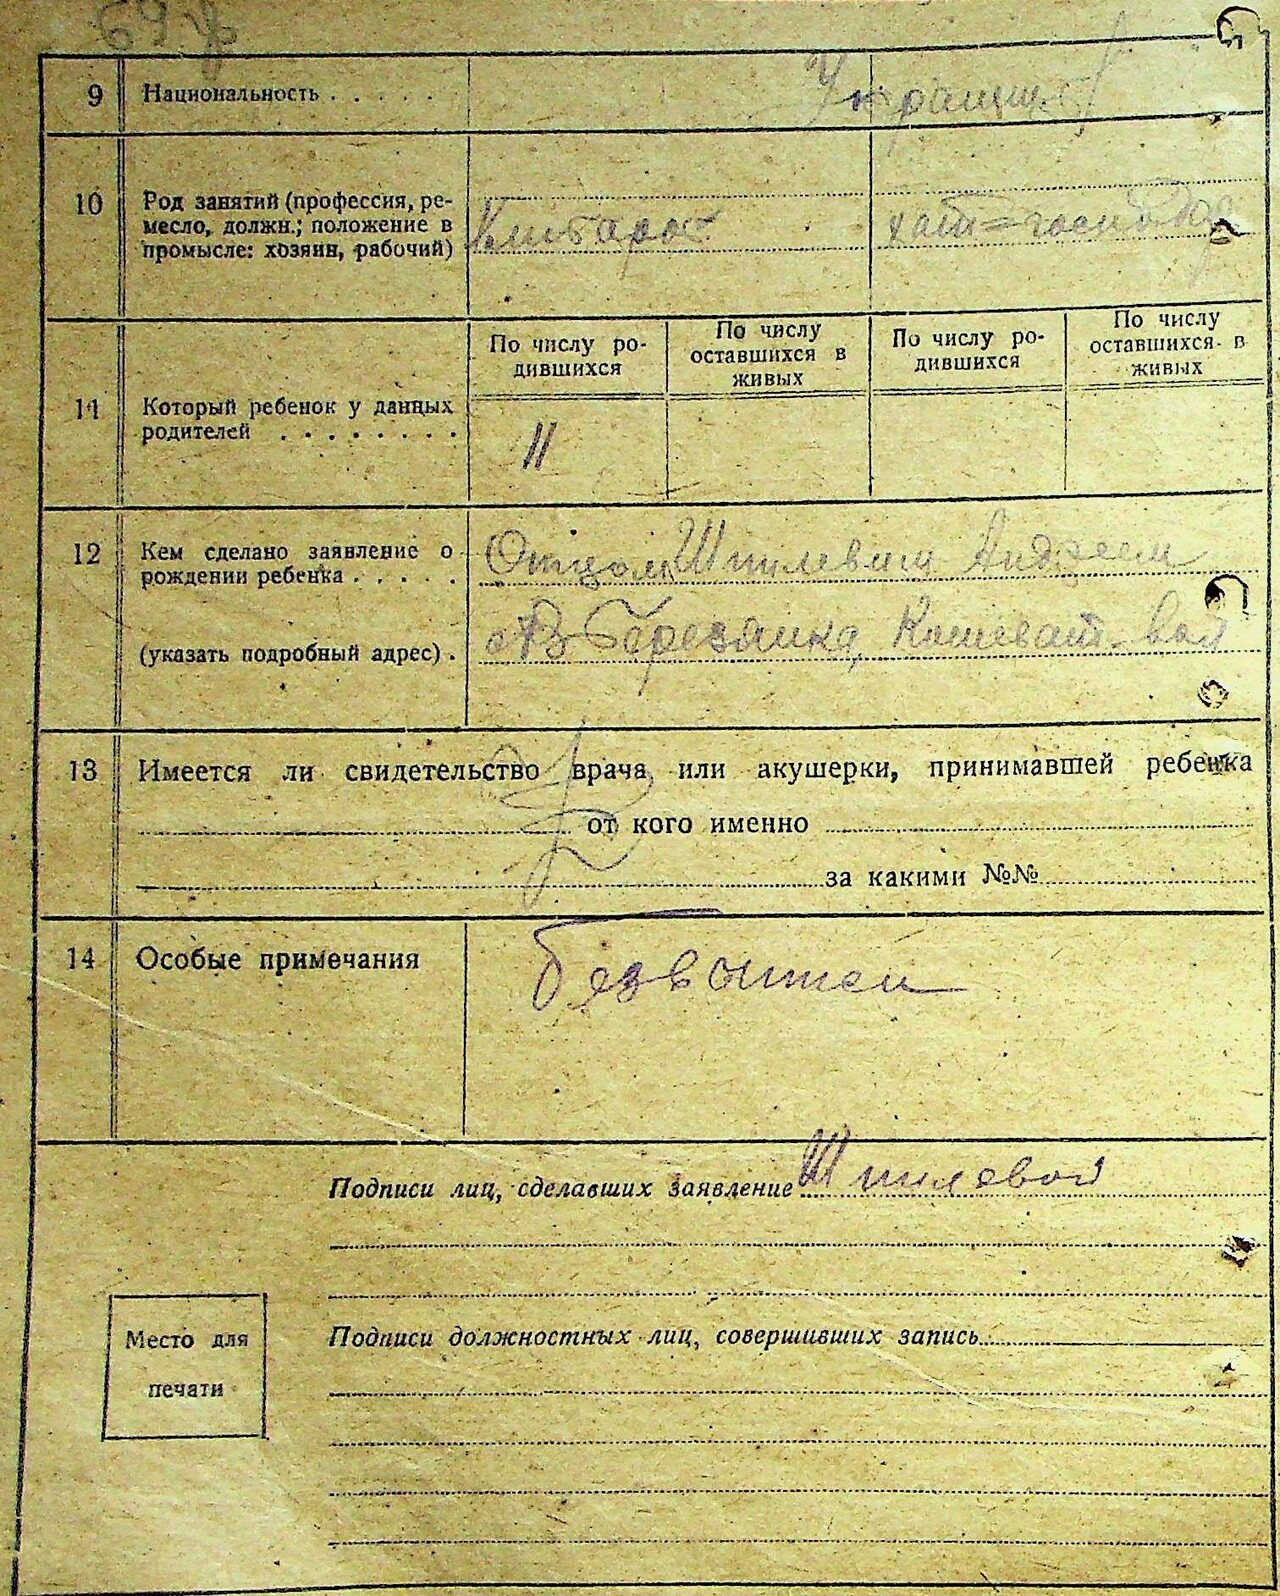 9 Национальность . . . . .
10 Род занятий (профессия, ре-
месло, должн.; положение в
промысле: хозяин, рабочий)
По числу ро-
дившихся
По числу
оставшихся в
живых
По числу ро-
дившихся
По числу
оставшихся в
живых
11 Который ребенок у данных
родителей . . . . . . . .
II
12 Кем сделано заявление о
рождении ребенка . . . . .
Отцом Шпилевым Андреем
(указать подробный адрес) .
Березянка,
13 Имеется ли свидетельство врача или акушерки, принимавшей ребенка
от кого именно
за какими №№
14 Особые примечания
Подписи лиц, сделавших заявление Шпилевой
Место для
печати
Подписи должностных лиц, совершивших запись